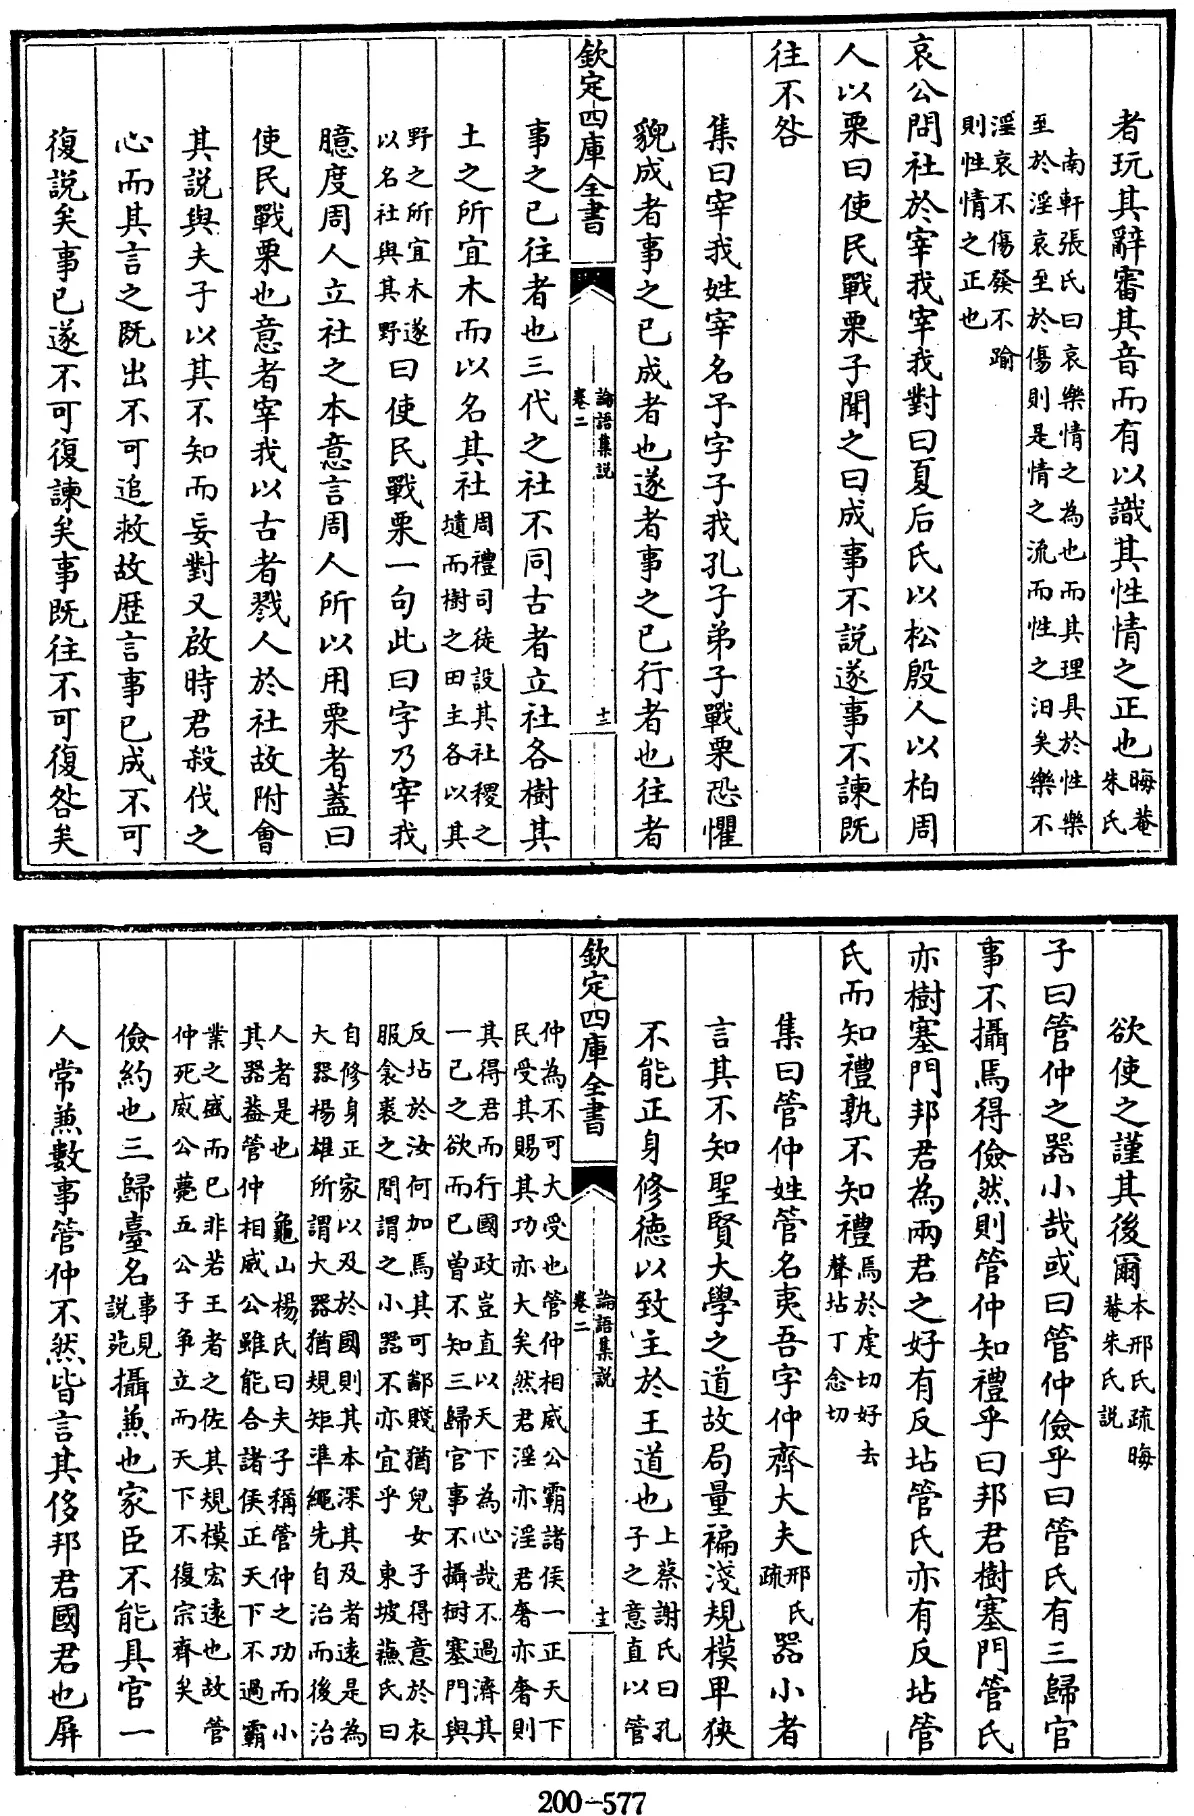 者玩其辭審其音而有以識其性情之正也晦菴朱氏
南軒張氏曰哀樂情之為也而其理具於性樂
至於淫哀至於傷則是情之流而性之汨矣樂不
淫哀不傷發不踰
則性情之正也
哀公問社於宰我宰我對曰夏后氏以松殷人以柏周
人以栗曰使民戰栗子聞之曰成事不說遂事不諫既
往不咎
集曰宰我姓宰名予字子我孔子弟子戰栗恐懼
貌成者事之已成者也遂者事之已行者也往者
欽定四庫全書
論語集說
卷二
十二
事之已往者也三代之社不同古者立社各樹其
土之所宜木而以名其社周禮司徒設其社稷之壝而樹之田主各以其
野之所宜木遂以名社與其野曰使民戰栗一句此曰字乃宰我
臆度周人立社之本意言周人所以用栗者蓋曰
使民戰栗也意者宰我以古者戮人於社故附會
其說與夫子以其不知而妄對又啟時君殺伐之
心而其言之既出不可追救故歷言事已成不可
復說矣事已遂不可復諫矣事既往不可復咎矣
欲使之謹其後爾本邢氏疏晦菴朱氏說
子曰管仲之器小哉或曰管仲儉乎曰管氏有三歸官
事不攝焉得儉然則管仲知禮乎曰邦君樹塞門管氏
亦樹塞門邦君為兩君之好有反坫管氏亦有反坫管
氏而知禮孰不知禮焉於虔切好去聲坫丁念切
集曰管仲姓管名夷吾字仲齊大夫邢氏疏器小者
言其不知聖賢大學之道故局量褊淺規模卑狹
不能正身修德以致主於王道也上蔡謝氏曰孔子之意直以管
欽定四庫全書
論語集說
卷二
十三
仲為不可大受也管仲相威公霸諸侯一正天下
民受其賜其功亦大矣然君淫亦淫君奢亦奢則
其得君而行國政豈直以天下為心哉不過濟其
一己之欲而已曾不知三歸官事不攝樹塞門與
反坫於汝何加焉其可鄙賤猶兒女子得意於衣
服衾裘之間謂之小器不亦宜乎　東坡蘇氏曰
自修身正家以及於國則其本深其及者遠是為
大器楊雄所謂大器猶規矩準繩先自治而後治
人者是也　龜山楊氏曰夫子稱管仲之功而小
其器蓋管仲相威公雖能合諸侯正天下不過霸
業之盛而已非若王者之佐其規模宏遠也故管
仲死威公薨五公子爭立而天下不復宗齊矣
儉約也三歸臺名事見說苑攝兼也家臣不能具官一
人常兼數事管仲不然皆言其侈邦君國君也屏
200-577